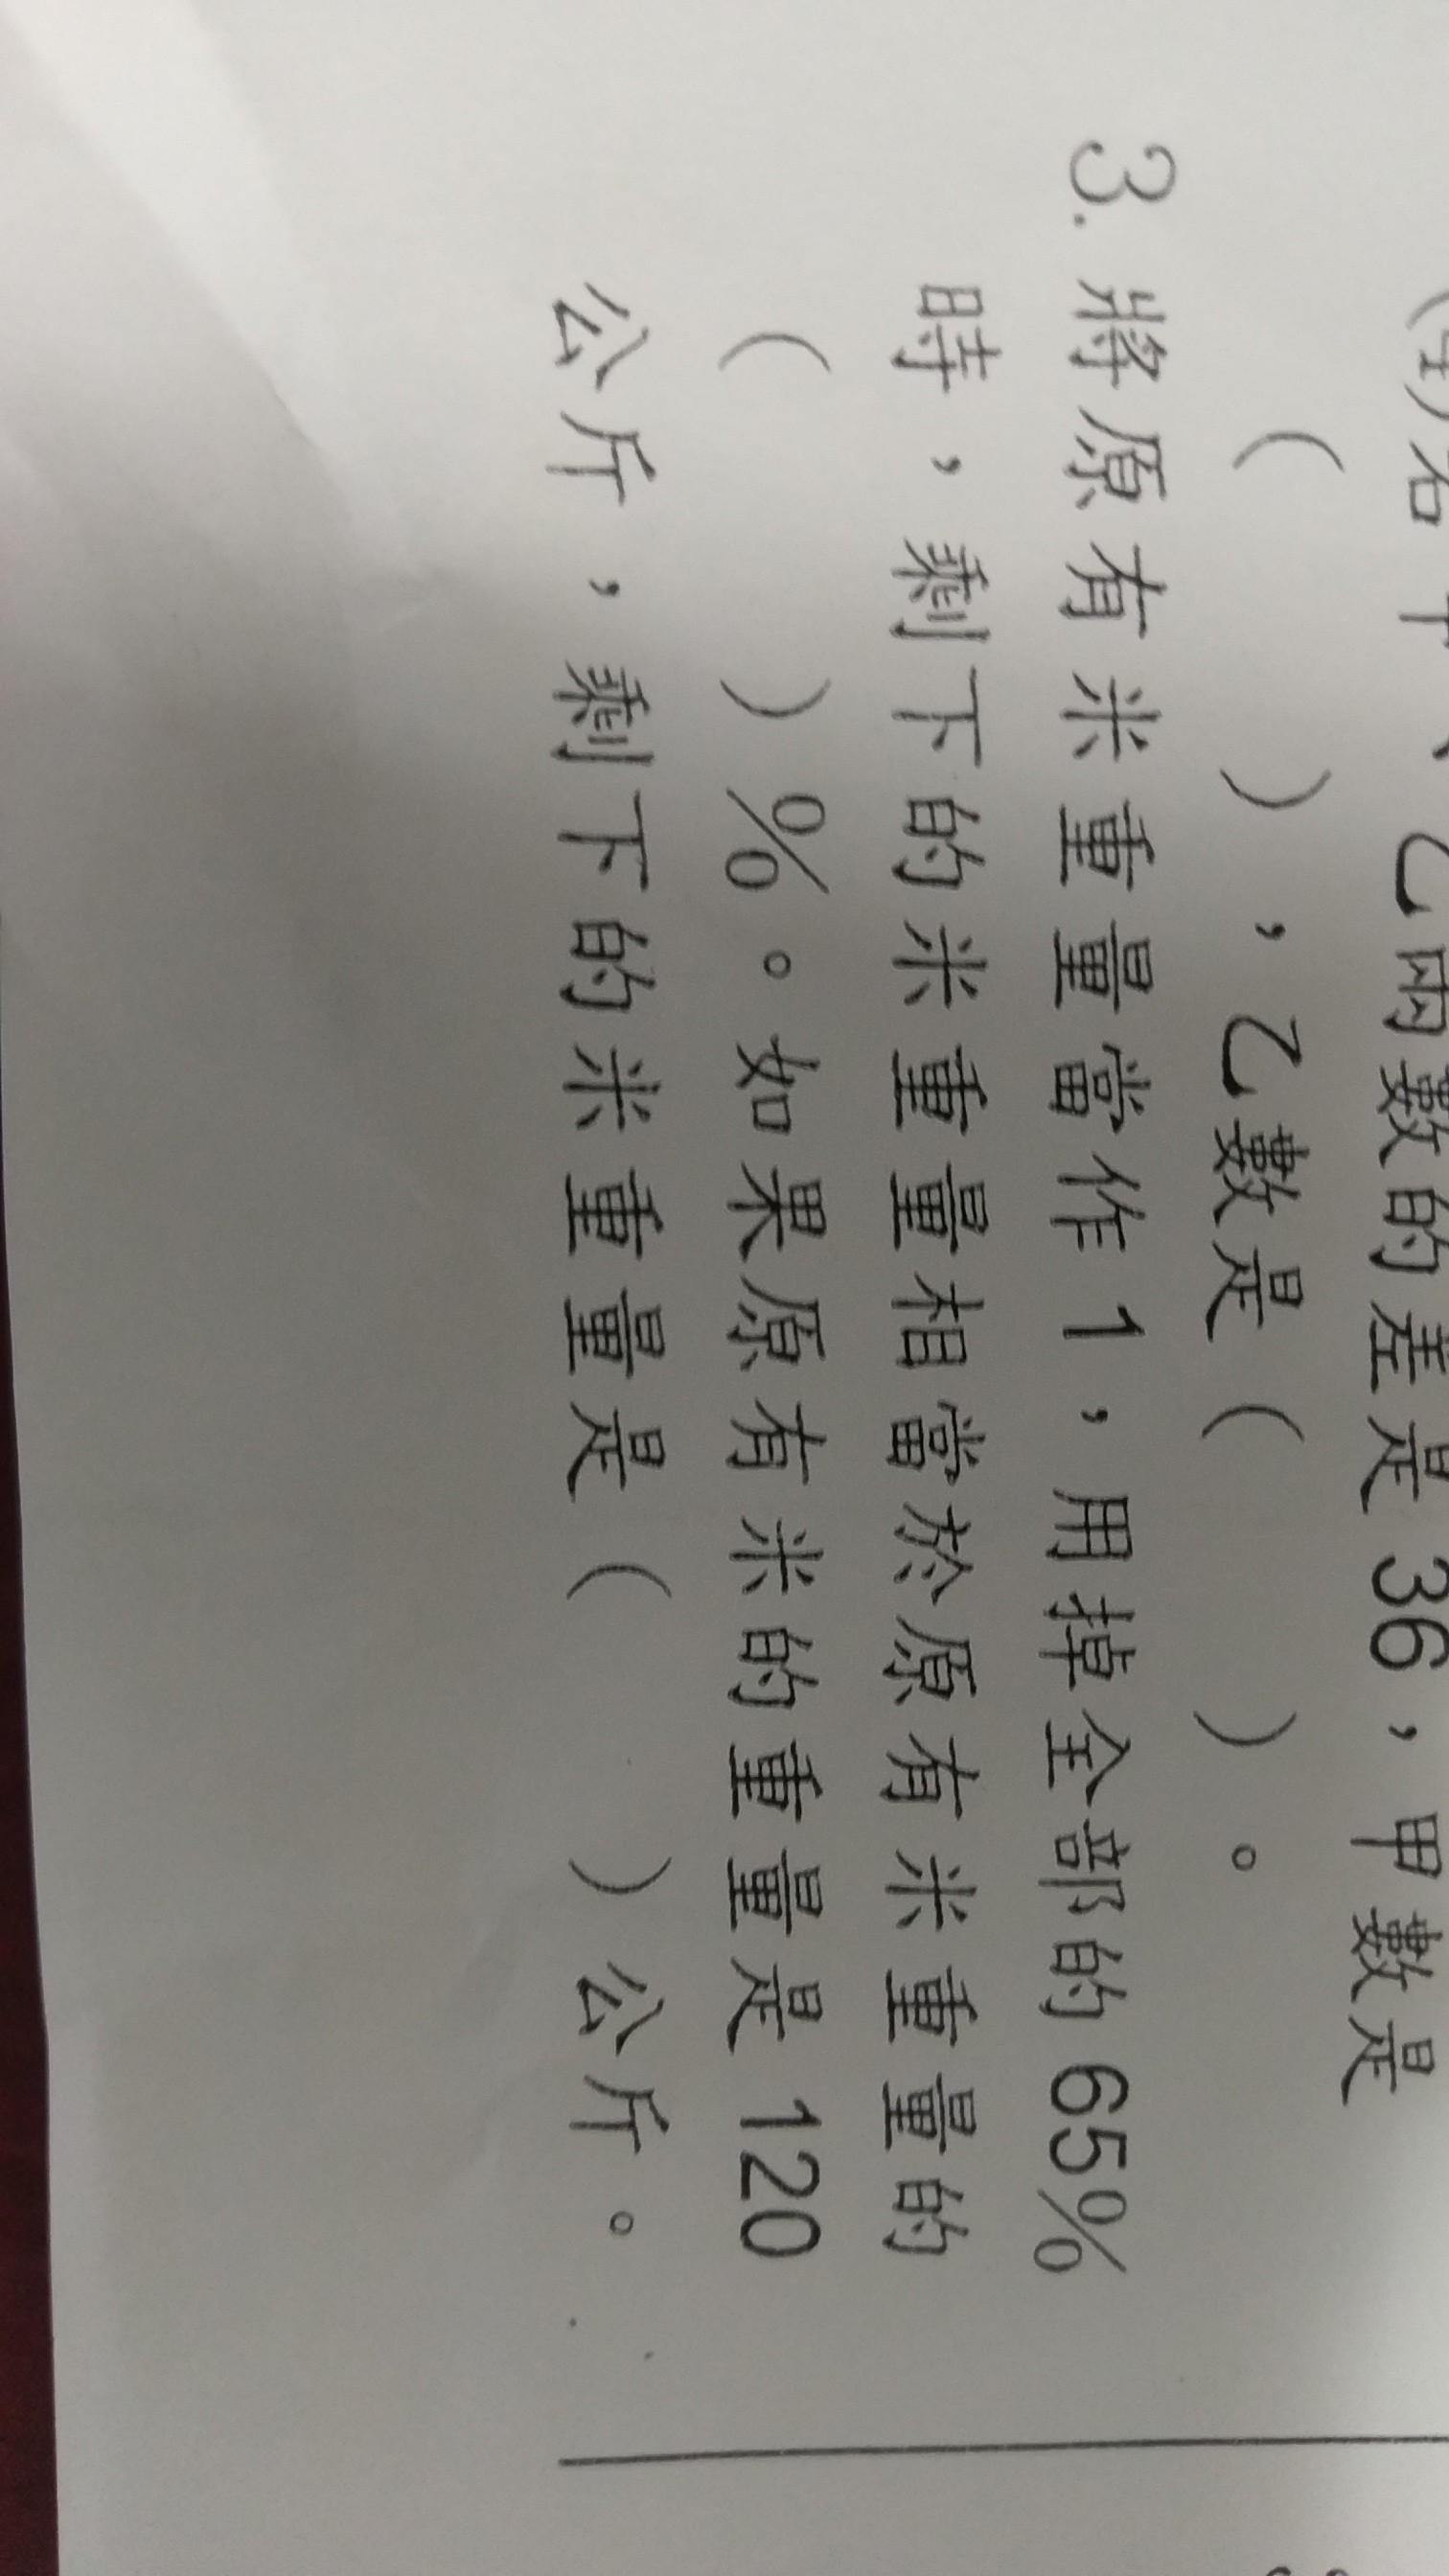 乙兩數的差是36，甲數是
（　　　），乙數是（　　　）。
3. 將原有米重量當作1，用掉全部的65%
時，剩下的米重量相當於原有米重量的
（　　　）%。如果原有米的重量是120
公斤，剩下的米重量是（　　　）公斤。